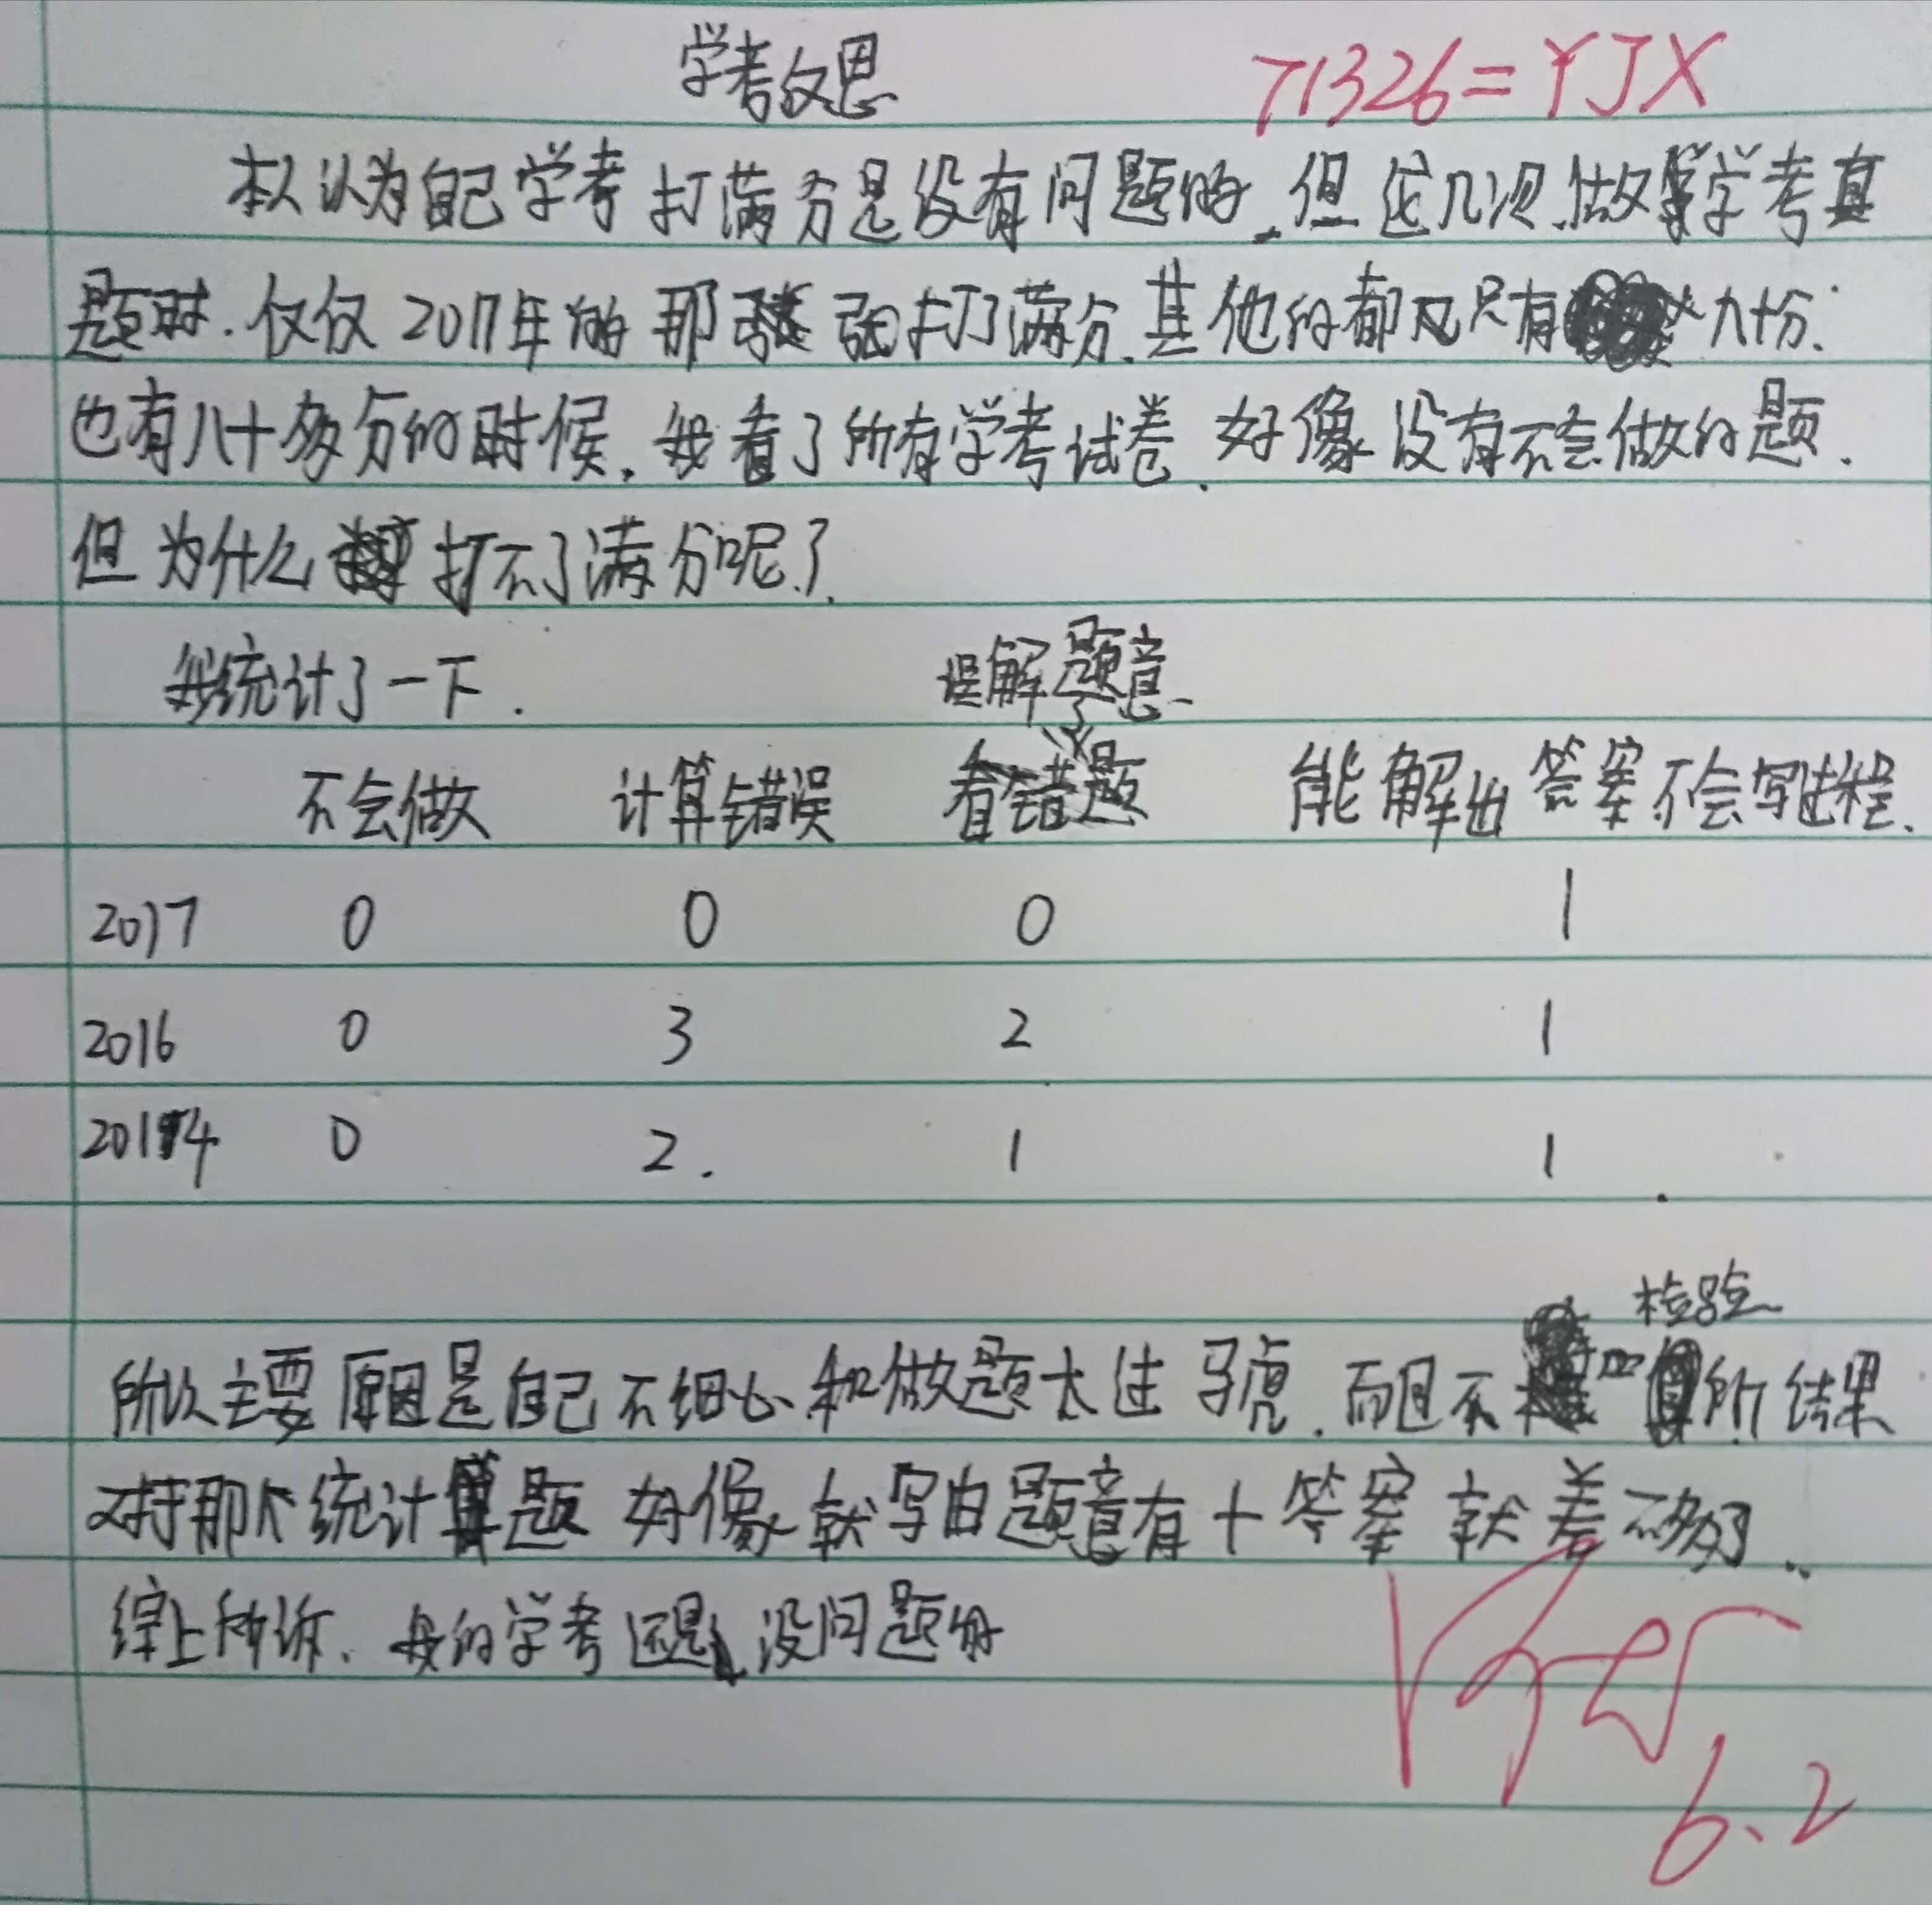 学考反思 71326=YJX
本以认为自己学考打满分是没有问题的.但这几次做学考真
题时.仅仅2017年的那张打了满分.其他的都只有九十分.
也有八十多分的时候.我看了所有学考试卷.好像没有不会做的题.
但为什么打不了满分呢?
我统计了一下.
误解题意
不会做 计算错误 看错题 能解出答案不会写过程.
2017 0 0 0 1
2016 0 3 2 1
2014 0 2. 1 1
检验
所以主要原因是自己不细心和做题太过马虎.而且不所结果
对于那个统计题好像就写由题意有+答案就差不多了..
综上所诉.我的学考还是没问题的
6.2